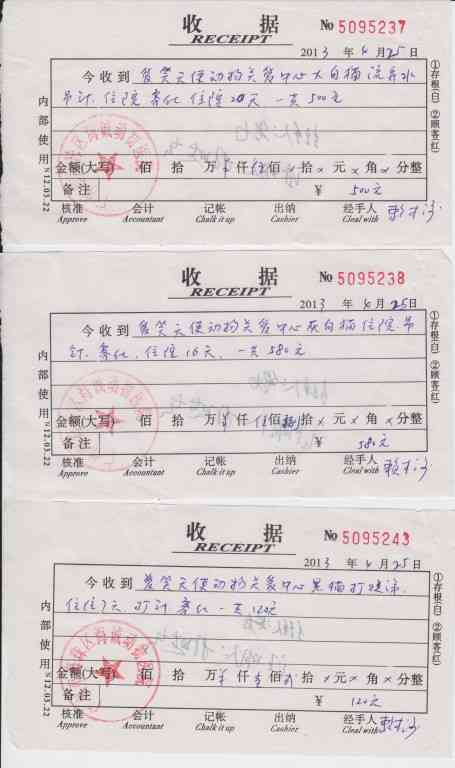 收 据
RECEIPT
No 5095237
2013 年 4 月 25 日
今收到 爱笑天使动物关爱中心大白猫流鼻水
吊针、住院 住院20天 一共500元
金额(大写) 佰 拾 万 仟 伍 佰 拾 元 角 分整
备注 ¥ 500元
核准 会计 记帐 出纳 经手人
Approve Accountant Chalk it up Cashier Cleal with
①存根(白) ②顾客(红)
内部使用
S12.03.22
收 据
RECEIPT
No 5095238
2013 年 4 月 25 日
今收到 爱笑天使动物关爱中心灰白猫住院 吊
针、住院16天、一共580元
金额(大写) 佰 拾 万 仟 伍 佰 捌 拾 元 角 分整
备注 ¥ 580元
核准 会计 记帐 出纳 经手人
Approve Accountant Chalk it up Cashier Cleal with
①存根(白) ②顾客(红)
内部使用
S12.03.22
收 据
RECEIPT
No 5095243
2013 年 4 月 25 日
今收到 爱笑天使动物关爱中心黑猫打喷涕
住院7天 打针 一共120元
金额(大写) 佰 拾 万 仟 壹 佰 拾 元 角 分整
备注 ¥ 120元
核准 会计 记帐 出纳 经手人
Approve Accountant Chalk it up Cashier Cleal with
①存根(白) ②顾客(红)
内部使用
S12.03.22